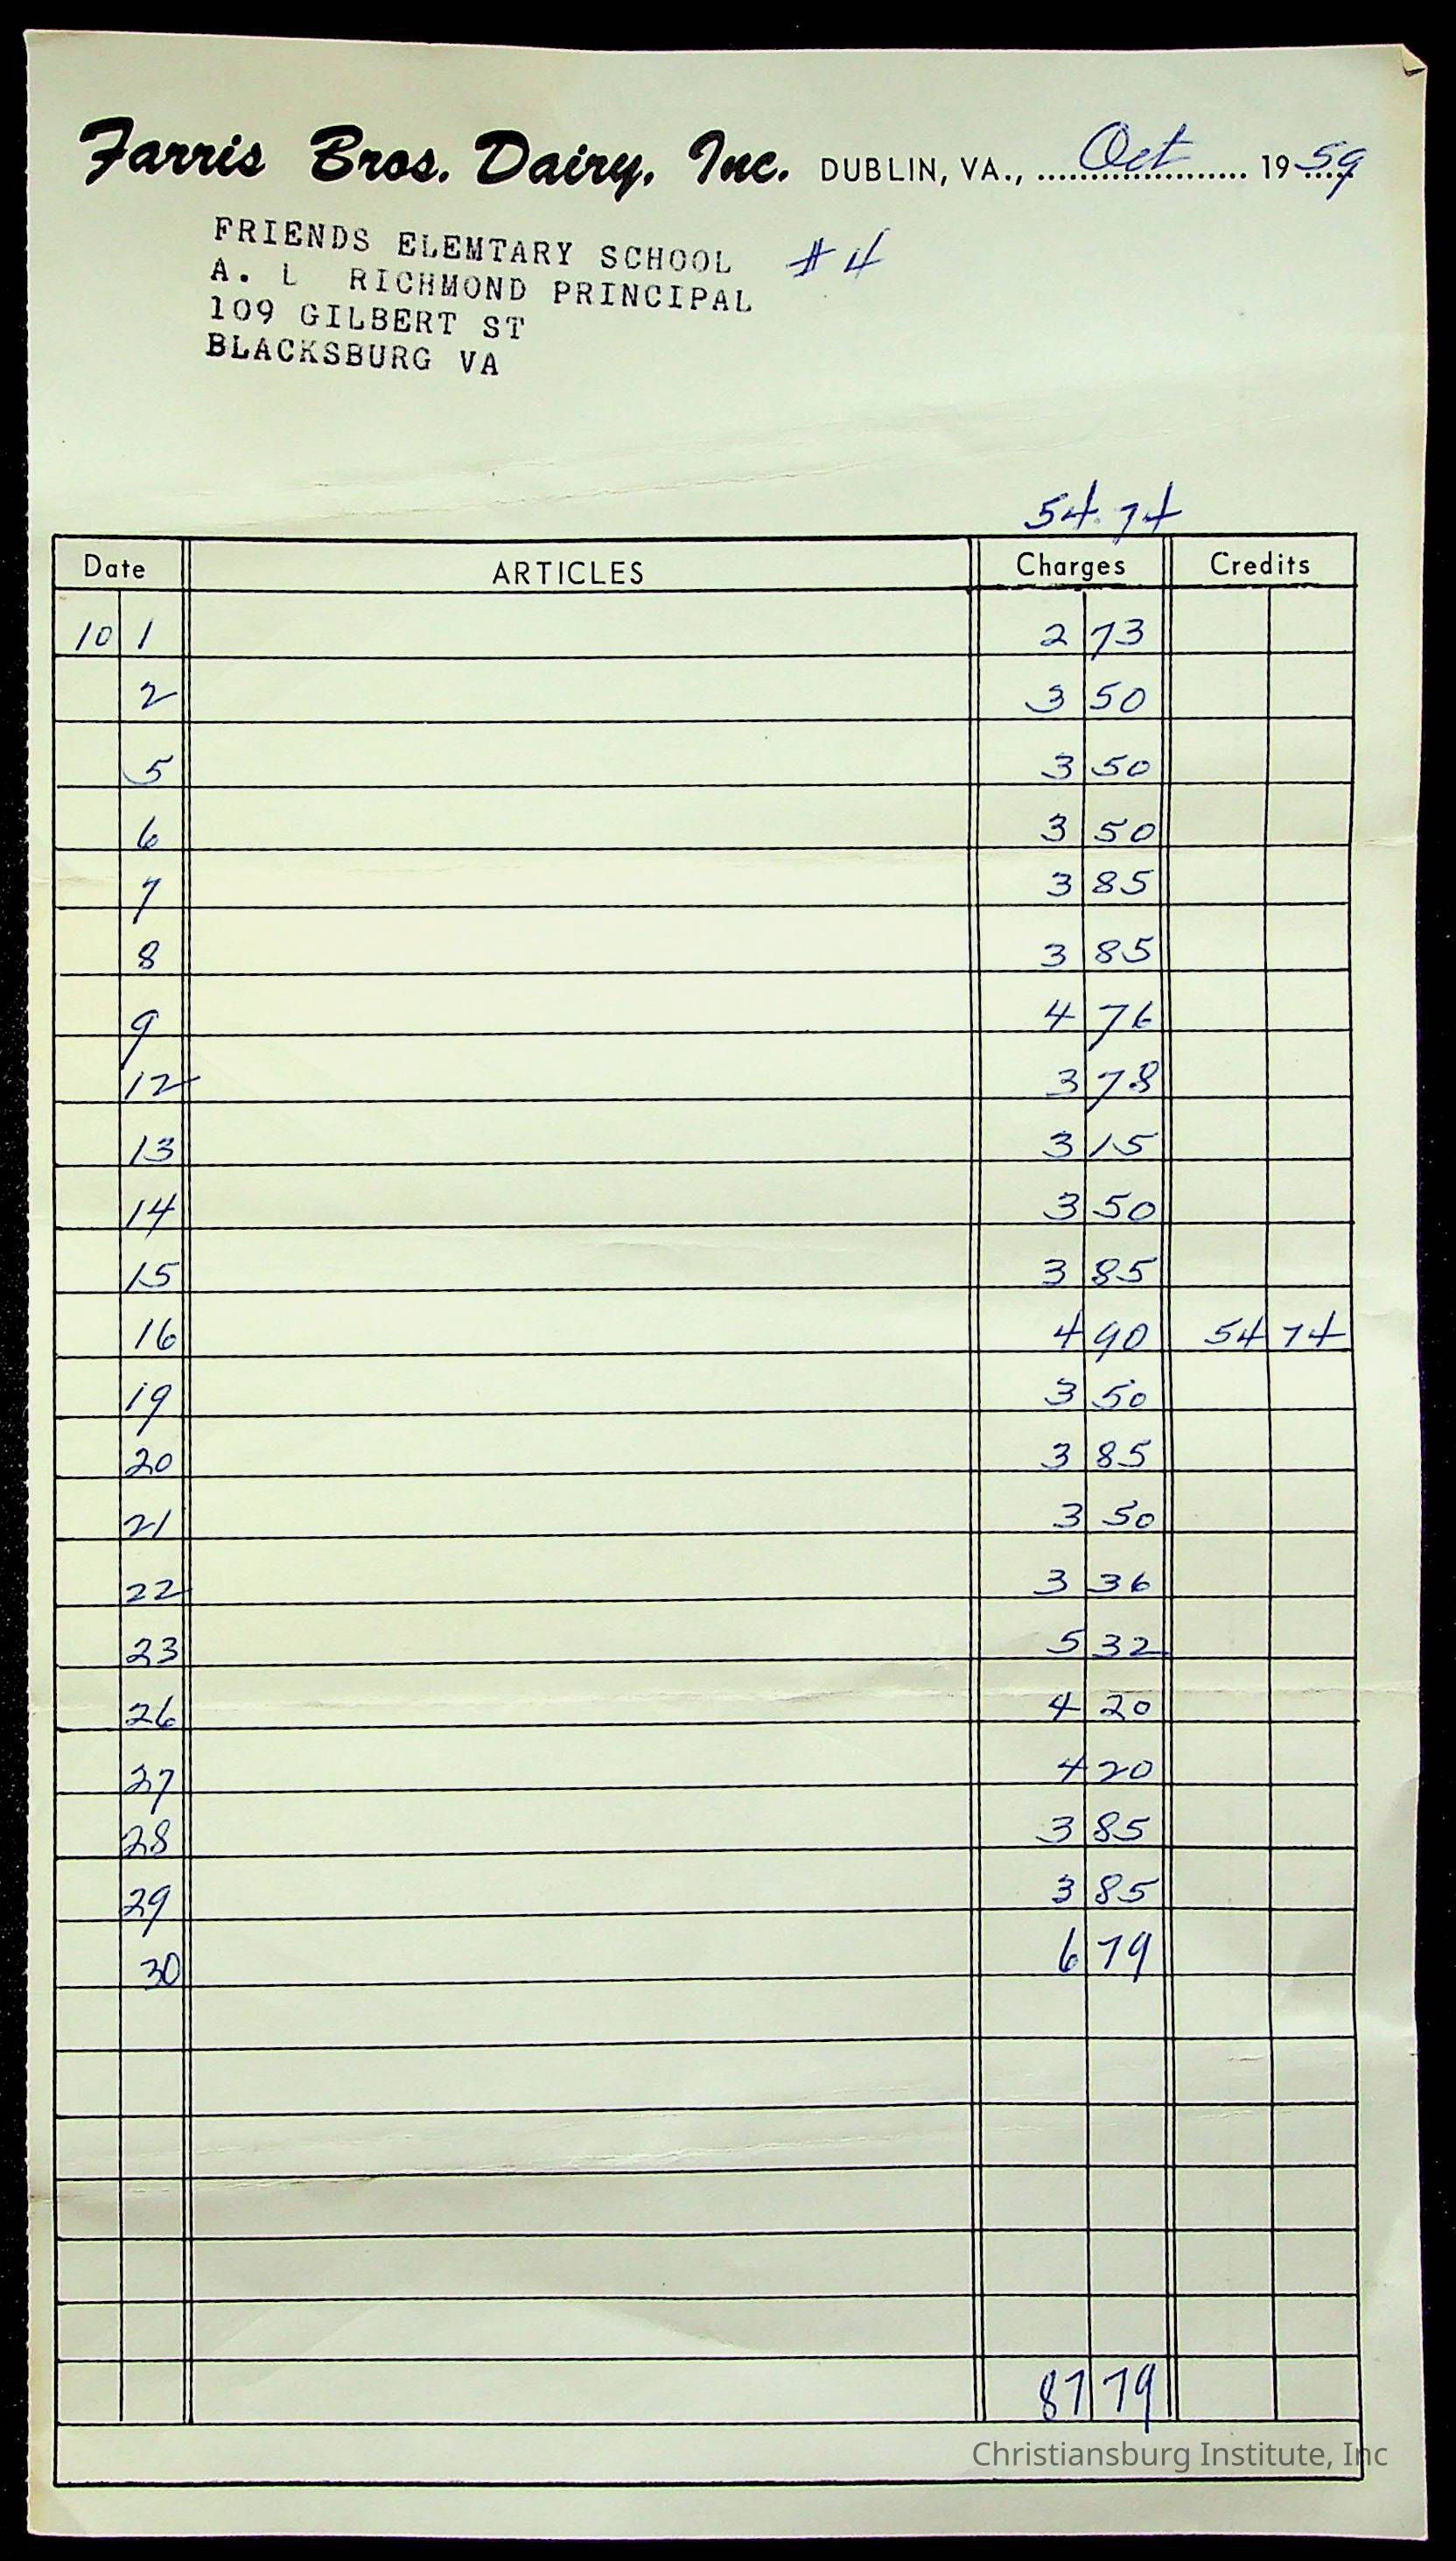 Farris Bros. Dairy, Inc. DUBLIN, VA., Oct 1959
FRIENDS ELEMTARY SCHOOL #4
A. L RICHMOND PRINCIPAL
109 GILBERT ST
BLACKSBURG VA
54.74
Date ARTICLES Charges Credits
10 1 2 73
2 3 50
5 3 50
6 3 50
7 3 85
8 3 85
9 4 76
12 3 78
13 3 15
14 3 50
15 3 85
16 4 90 54 74
19 3 50
20 3 85
21 3 50
22 3 36
23 5 32
26 4 20
27 4 20
28 3 85
29 3 85
30 6 79
87 79
Christiansburg Institute, Inc